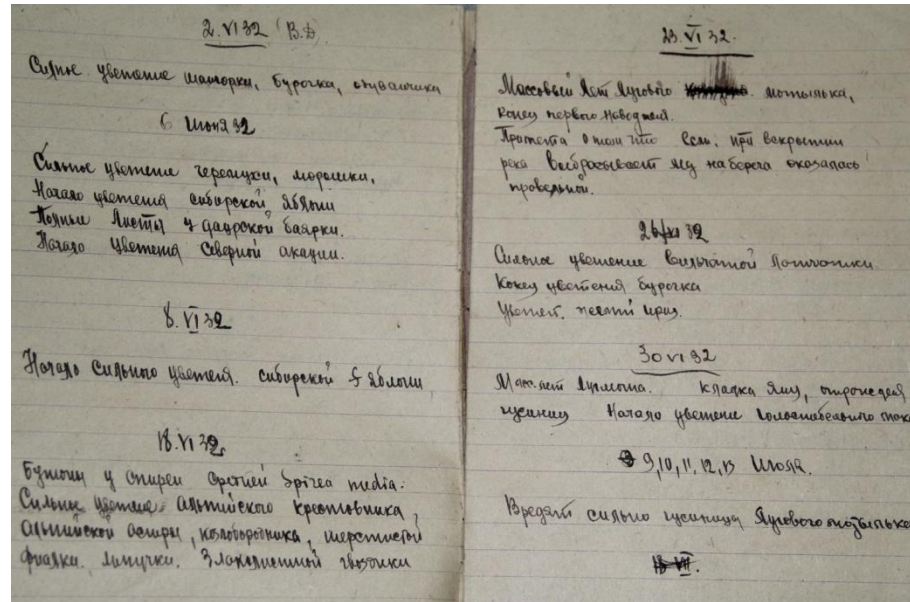 2. VI 32 (В.Д)
Сильное цветение бурочка, одуванчика
6 Июня 32
Сильное цветение черемухи, морошки,
Начало цветения сибирской яблони
Полные листы у даурской баярки.
Начало цветения Северной акации.
8. VI 32
Начало сильного цветения. сибирской яблони
18. VI 32
Бутоны у спиреи средней Spirea media.
Сильное цветение альпийского крестовника,
альпийской астры, козлобородника, шерстистой
фиалки. липучки. Злаколистной гвоздики
23. VI 32.
Массовый лет лугового мотылька,
конец первого
Примета о том что если, при вскрытии
река выбрасывает лед на берега оказалась
провальной.
26/VI 32
Сильное цветение вильчатой лапчатки.
Конец цветения бурочка
Цветет. ирис.
30 VI 32
Мас. лет кладка яиц,
гусениц Начало цветение
9, 10, 11, 12, 13 Июля.
Вредят сильно гусеница Лугового мотылька
13 VII.